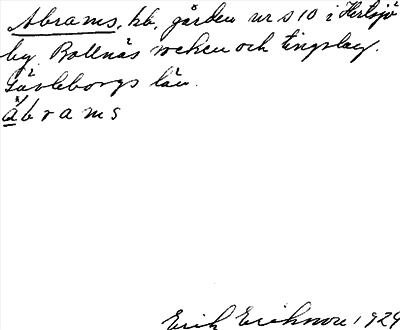 Abrams, hb. gården nr s 10 i Hertsjö
by. Bollnäs socken och tingslag.
Gävleborgs län.
ábrams
Erik Eriksson 1929